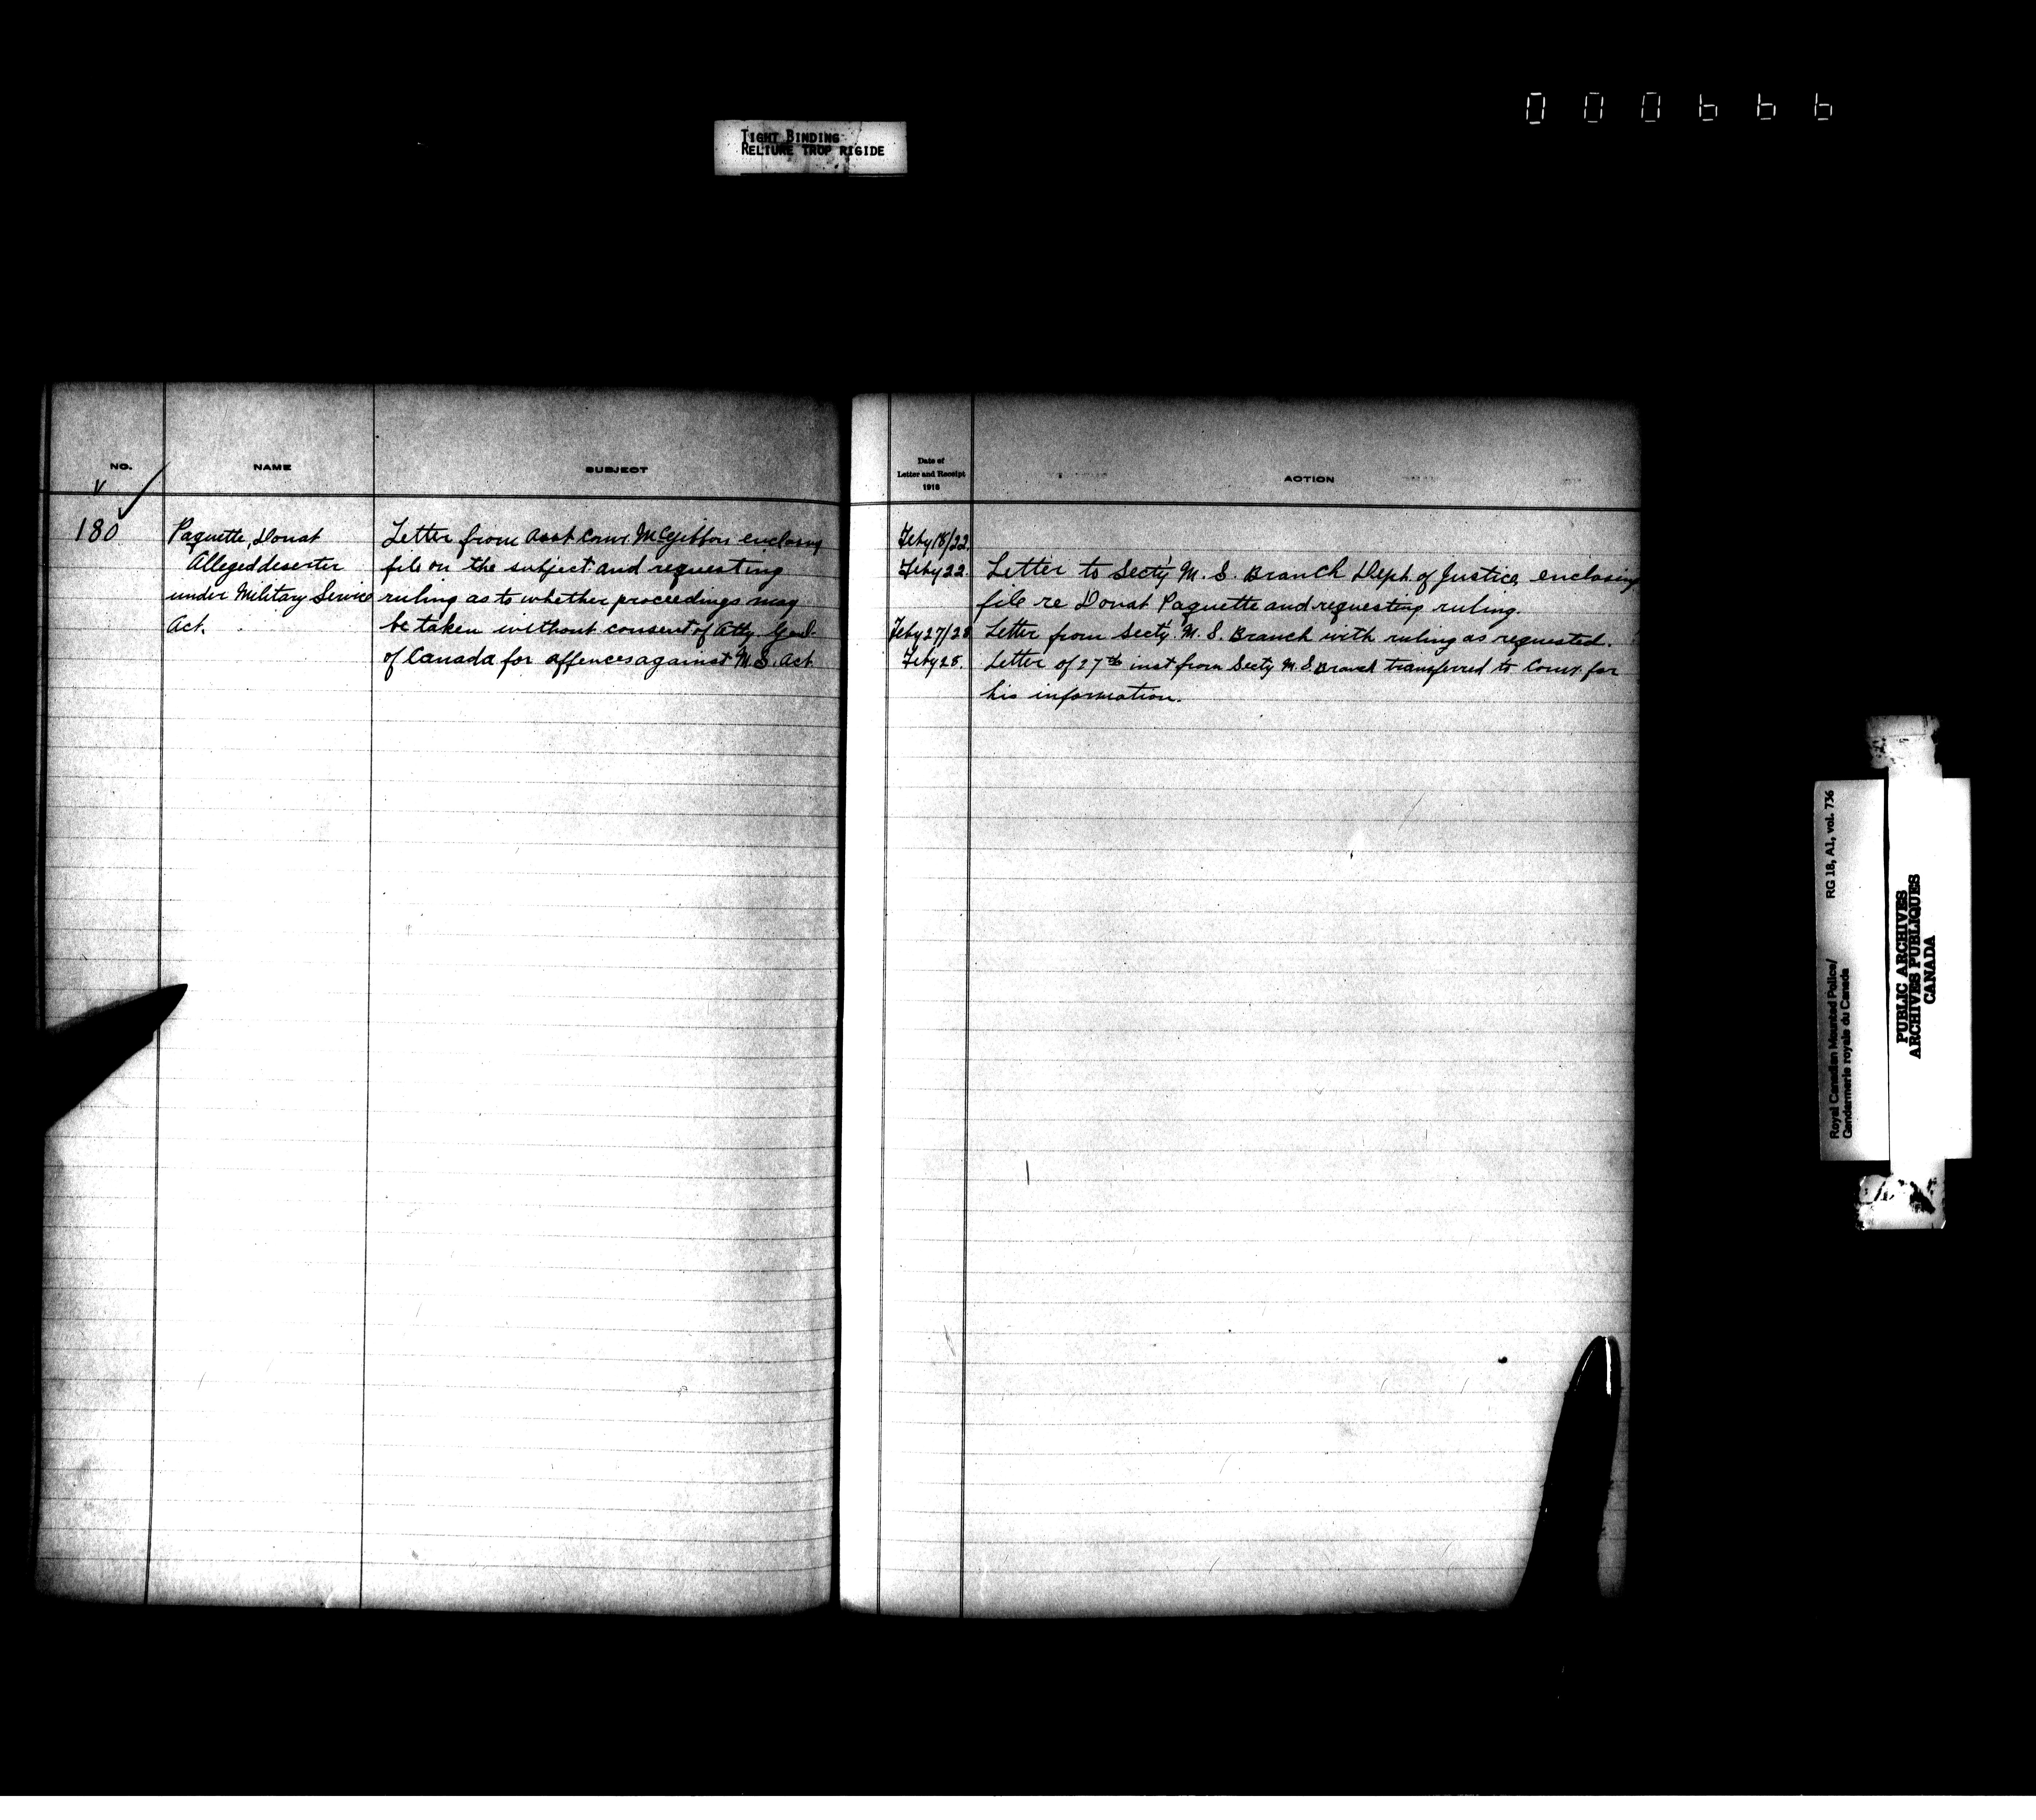 000666
TIGHT BINDING
RELIURE TROP RIGIDE
NO.
NAME
SUBJECT
180
Paquette, Donat
Alleged deserter
under Military Service
Act.
Letter from Asst. Comr. McGibbon enclosing
file on the subject and requesting
ruling as to whether proceedings may
be taken without consent of Atty. Genl.
of Canada for offences against M.S. Act
Date of
Letter and Receipt
1918
ACTION
Feby 18/22.
Feby 22. Letter to Secty M. S. Branch Dept. of Justice, enclosing
file re Donat Paquette and requesting ruling.
Feby 27/28 Letter from Secty. M. S. Branch with ruling as requested.
Feby 28. Letter of 27th inst from Secty M.S. Branch transferred to Comr. for
his information.
Royal Canadian Mounted Police/
Gendarmerie royale du Canada
RG 18, A1, vol. 736
PUBLIC ARCHIVES
ARCHIVES PUBLIQUES
CANADA